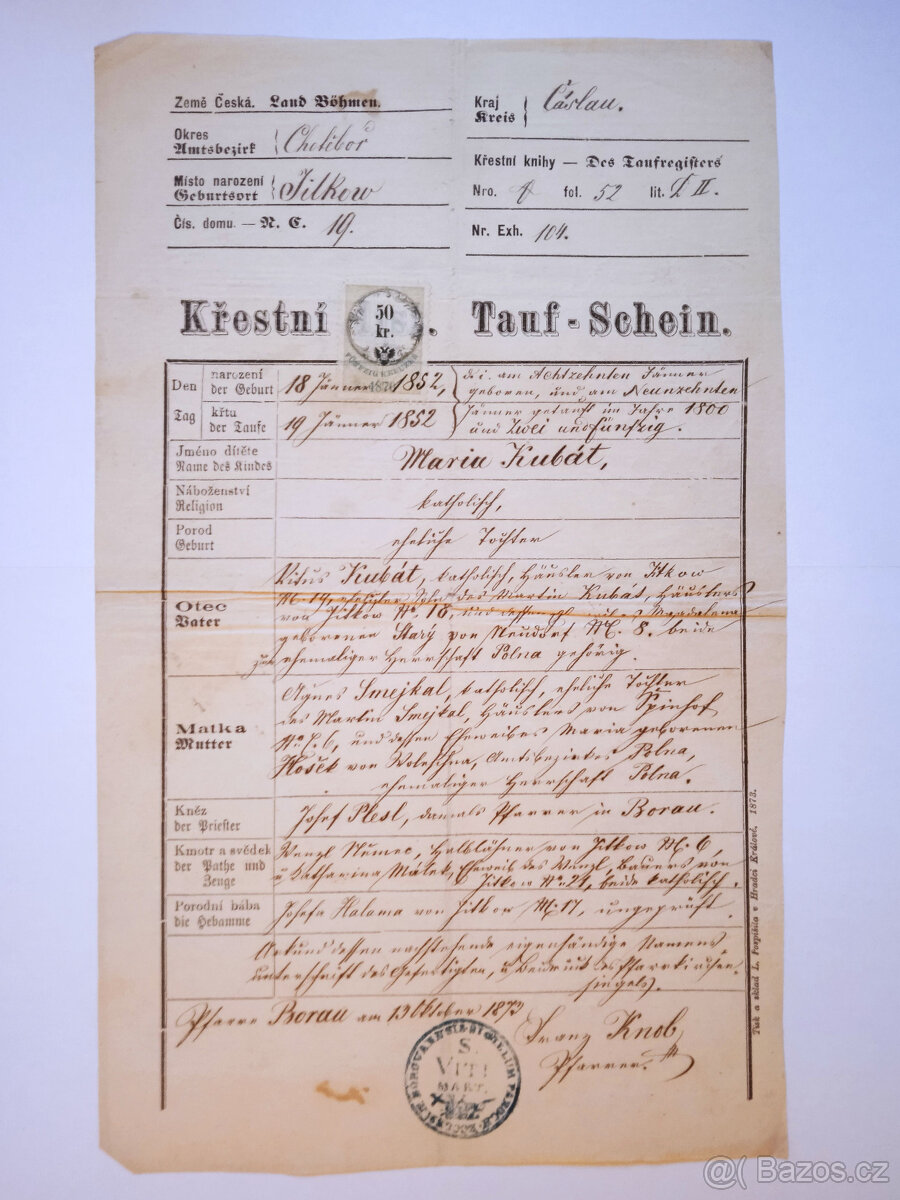 Země Česká. Land Böhmen.
Kraj
Kreis
Čáslau.
Okres
Amtsbezirk
Chotěboř
Křestní knihy — Des Taufregisters
Nro. fol. 52 lit. II.
Místo narození
Geburtsort
Jitkow
Čís. domu. — N. C. 19.
Nr. Exh. 104.
Křestní . Tauf-Schein.
50
kr.
Den
Tag
narození
der Geburt
18 Jänner 1852,
d. i. am Achtzehnten Jänner
geboren, und am Neunzehnten
Jänner getauft im Jahre 1800
und Zwei und fünfzig.
křtu
der Taufe
19 Jänner 1852
Jméno dítěte
Name des Kindes
Maria Kubát,
Náboženství
Religion
katholisch,
Porod
Geburt
eheliche Tochter
Otec
Vater
Vitus Kubát, katholisch, Häusler von Jitkow
N. 19, ehelicher Sohn des Martin Kubát, Häuslers
von Jitkow No. 18, und dessen Magdalena
geborenen Starý von Neudorf N. 8. beide
zur ehemaliger Herrschaft Polna gehörig.
Matka
Mutter
Agnes Smejkal, katholisch, eheliche Tochter
des Martin Smejkal, Häuslers von Spinhof
No. 6, und dessen Eheweibes Maria geborenen
Hošek von Woleschna, Amtsbezirkes Polna,
ehemaliger Herrschaft Polna.
Kněz
der Priester
Josef Plesl, damals Pfarrer in Borau.
Kmotr a svědek
der Pathe und
Zeuge
Wenzl Numec, Halblöhner von Jitkow N. 6,
u. Katharina Málek, Eheweib des Wenzl, Bauers von
Jitkow No. 21, beide katholisch.
Porodní bába
die Hebamme
Josefa Halama von Jitkow N. 17, ungeprüft.
Urkund dessen nachstehende eigenhändige Namens-
unterschrift des Gefertigten, u. Beidruck des Pfarrkirchen-
siegels.
Pfarre Borau am 13 Oktober 1873
Franz Knob
Pfarrer.
S.
VITI
MART.
Tisk a sklad L. Pospíšila v Hradci Králové. 1873.
@( Bazos.cz